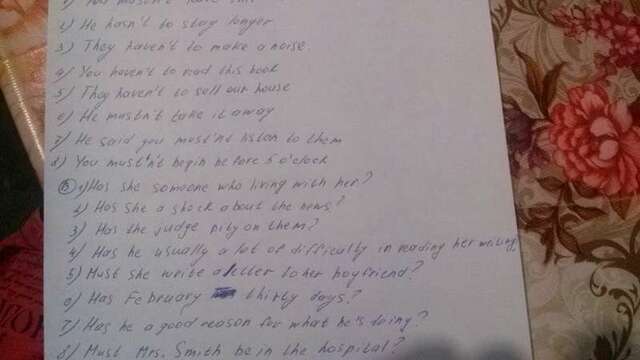 1) You mustn't leave
2) He hasn't to stay longer
3) They haven't to make a noise.
4) You haven't to read this book
5) They haven't to sell our house
6) He mustn't take it away
7) He said you must'nt listen to them
8) You must'nt begin before 5 o'clock
B 1) Has she someone who living with her?
2) Has she a shock about the news?
3) Has the judge pity on them?
4) Has he usually a lot of difficalty in reading her writing
5) Must she write a letter to her boyfriend?
6) Has February thirty days?
7) Has he a good reason for what he's doing?
8) Must Mrs. Smith be in the hospital?